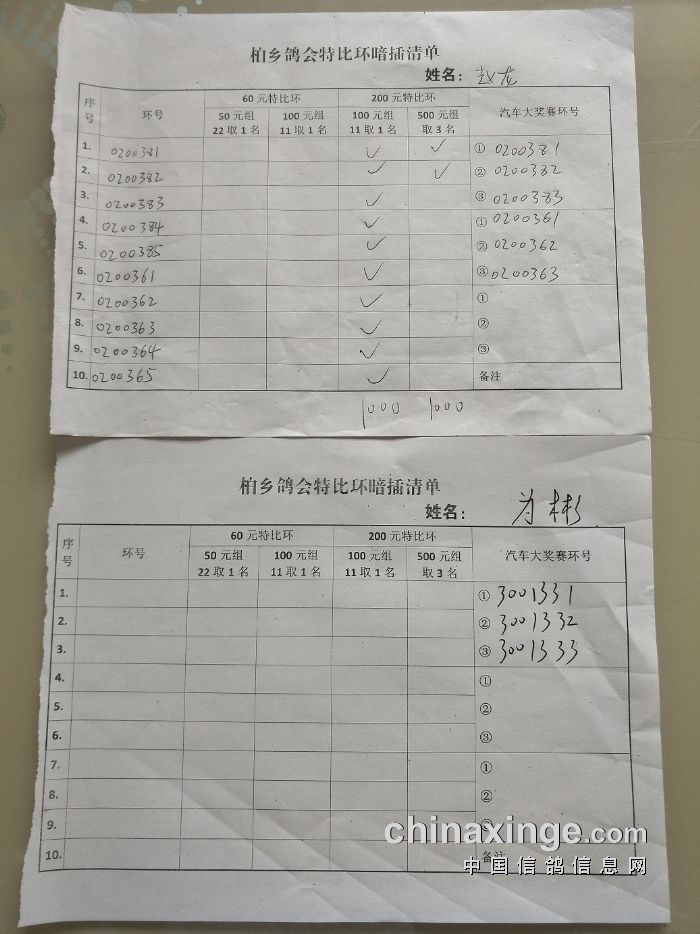 柏乡鸽会特比环暗插清单
姓名：赵龙
序号 环号 60元特比环 200元特比环 汽车大奖赛环号
50元组 22取1名 100元组 11取1名 100元组 11取1名 500元组 取3名
1. 0200381 ✓ ✓ ① 0200381
2. 0200382 ✓ ✓ ② 0200382
3. 0200383 ✓ ③ 0200383
4. 0200384 ✓ ① 0200361
5. 0200385 ✓ ② 0200362
6. 0200361 ✓ ③ 0200363
7. 0200362 ✓ ①
8. 0200363 ✓ ②
9. 0200364 ✓ ③
10. 0200365 ✓ 备注
1000 1000
柏乡鸽会特比环暗插清单
姓名：彬
序号 环号 60元特比环 200元特比环 汽车大奖赛环号
50元组 22取1名 100元组 11取1名 100元组 11取1名 500元组 取3名
1. ① 3001331
2. ② 3001332
3. ③ 3001333
4. ①
5. ②
6. ③
7. ①
8. ②
9. ③
10. 备注
chinaxinge.com
中国信鸽信息网